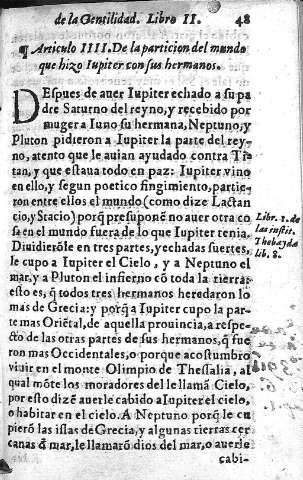 de la Gentilidad. Libro II. 48
¶ Articulo IIII. De la particion del mundo
que hizo Iupiter con sus hermanos.
DEspues de auer Iupiter echado a su pa
dre Saturno del reyno, y recebido por
muger a Iuno su hermana, Neptuno, y
Pluton pidieron a Iupiter la parte del rey-
no, atento que le auian ayudado contra Ti-
tan, y que estaua todo en paz: Iupiter vino
en ello, y segun poetico fingimiento, partie-
ron entre ellos el mundo (como dize Lactan
cio, y Stacio) porq̃ presuponẽ no auer otra co
sa en el mundo fuera de lo que Iupiter tenia.
Diuidierõle en tres partes, y echadas suertes,
le cupo a Iupiter el Cielo, y a Neptuno el
mar, y a Pluton el infierno cõ toda la tierra:
esto es, q̃ todos tres hermanos heredaron lo
mas de Grecia: y porq̃ a Iupiter cupo la par-
te mas Oriẽtal, de aquella prouincia, a respe-
cto de las otras partes de sus hermanos, q̃ fue
ron mas Occidentales, o porque acostumbro
viuir en el monte Olimpio de Thessalia, al
qual mõte los moradores del le llamã Cielo,
por esto dizẽ auerle cabido a Iupiter el cielo,
o habitar en el cielo. A Neptuno porq̃ le cu
pierõ las islas de Grecia, y algunas tierras cer
canas al mar, le llamarõ dios del mar, o auerle
cabi-
Libr. 1. de
las instit.
Thebayda
lib. 8.